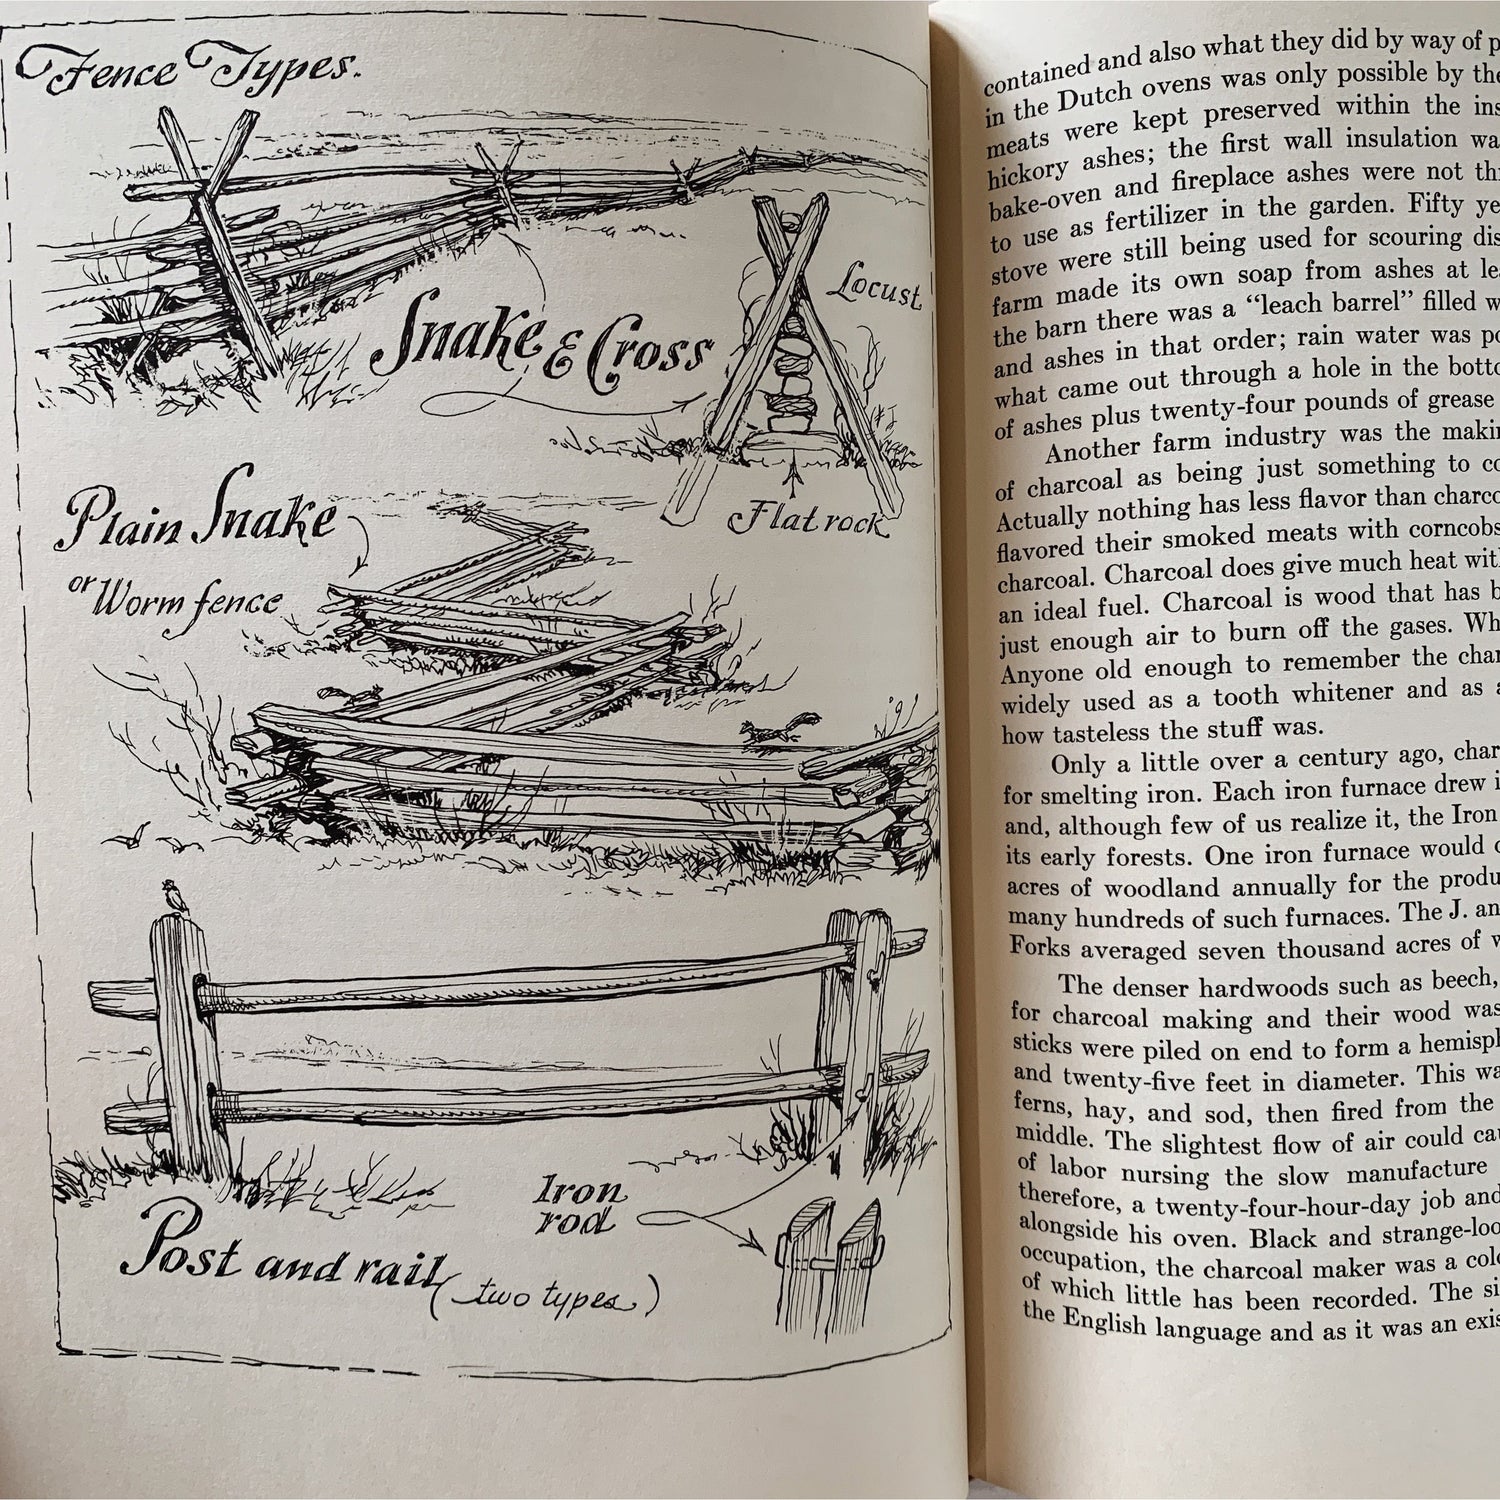 Fence Types.
Snake & Cross
Locust
Flat rock
Plain Snake
or Worm fence
Iron
rod
Post and rail (two types)
contained and also what they did by way of
in the Dutch ovens was only possible by the
meats were kept preserved within the
hickory ashes; the first wall insulation
bake-oven and fireplace ashes were not
to use as fertilizer in the garden. Fifty
stove were still being used for scouring
farm made its own soap from ashes at
the barn there was a “leach barrel” filled
and ashes in that order; rain water was
what came out through a hole in the
of ashes plus twenty-four pounds of grease
Another farm industry was the
of charcoal as being just something to
Actually nothing has less flavor than
flavored their smoked meats with corncobs
charcoal. Charcoal does give much heat
an ideal fuel. Charcoal is wood that has
just enough air to burn off the gases.
Anyone old enough to remember the
widely used as a tooth whitener and as
how tasteless the stuff was.
Only a little over a century ago,
for smelting iron. Each iron furnace drew
and, although few of us realize it, the Iron
its early forests. One iron furnace would
acres of woodland annually for the
many hundreds of such furnaces. The J.
Forks averaged seven thousand acres of
The denser hardwoods such as beech,
for charcoal making and their wood was
sticks were piled on end to form a
and twenty-five feet in diameter. This
ferns, hay, and sod, then fired from the
middle. The slightest flow of air could
of labor nursing the slow manufacture
therefore, a twenty-four-hour-day job and
alongside his oven. Black and
occupation, the charcoal maker was a
of which little has been recorded. The
the English language and as it was an